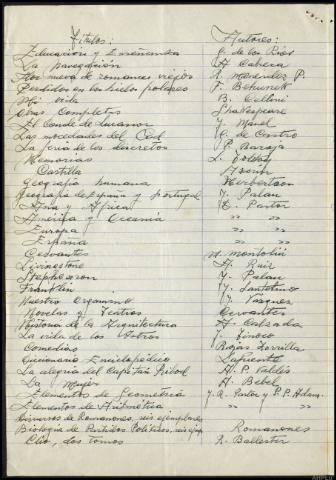 Títulos: Autores:
Educación y Enseñanza G. de los Rios
La navegación A. Cabrera
Flor nueva de romances viejos R. Menendez P.
Perdidos en los hielos polares F. Behounek
Mi vida B. Cellini
Obras Completas Shakespeare
El Conde de Lucanor J. Manuel
Las mocedades del Cid G. de Castro
La feria de los discretos P. Baroja
Memorias L. Tolstoy
Castilla Azorin
Geografia humana Herbertson
Geografia de España y Portugal J. Palau
Asia y Africa E. Pastor
América y Oceania " "
Europa " "
España " "
Cervantes M. Montoliu
Livingstone A. Ruiz
Stephenson J. Palau
Franklin J. Santolino
Nuestro Organismo J. Vazquez
Novelas y Teatros Cervantes
Historia de la Arquitectura A. Calzada
La vida de los Astros J. Tinoco
Comedias Rojas Zorrilla
Diccionario Enciclopédico Lafuente
La alegria del Capitán Ribot A. P. Valdés
La Mujer A. Bebel
Elementos de Geometria J. R. Pastor y P. P. Adam
Elementos de Aritmética
Discursos de Romanones, seis ejemplares
Biologia de Partidos Politicos, seis ejem. Romanones
Clio, dos tomos R. Ballester